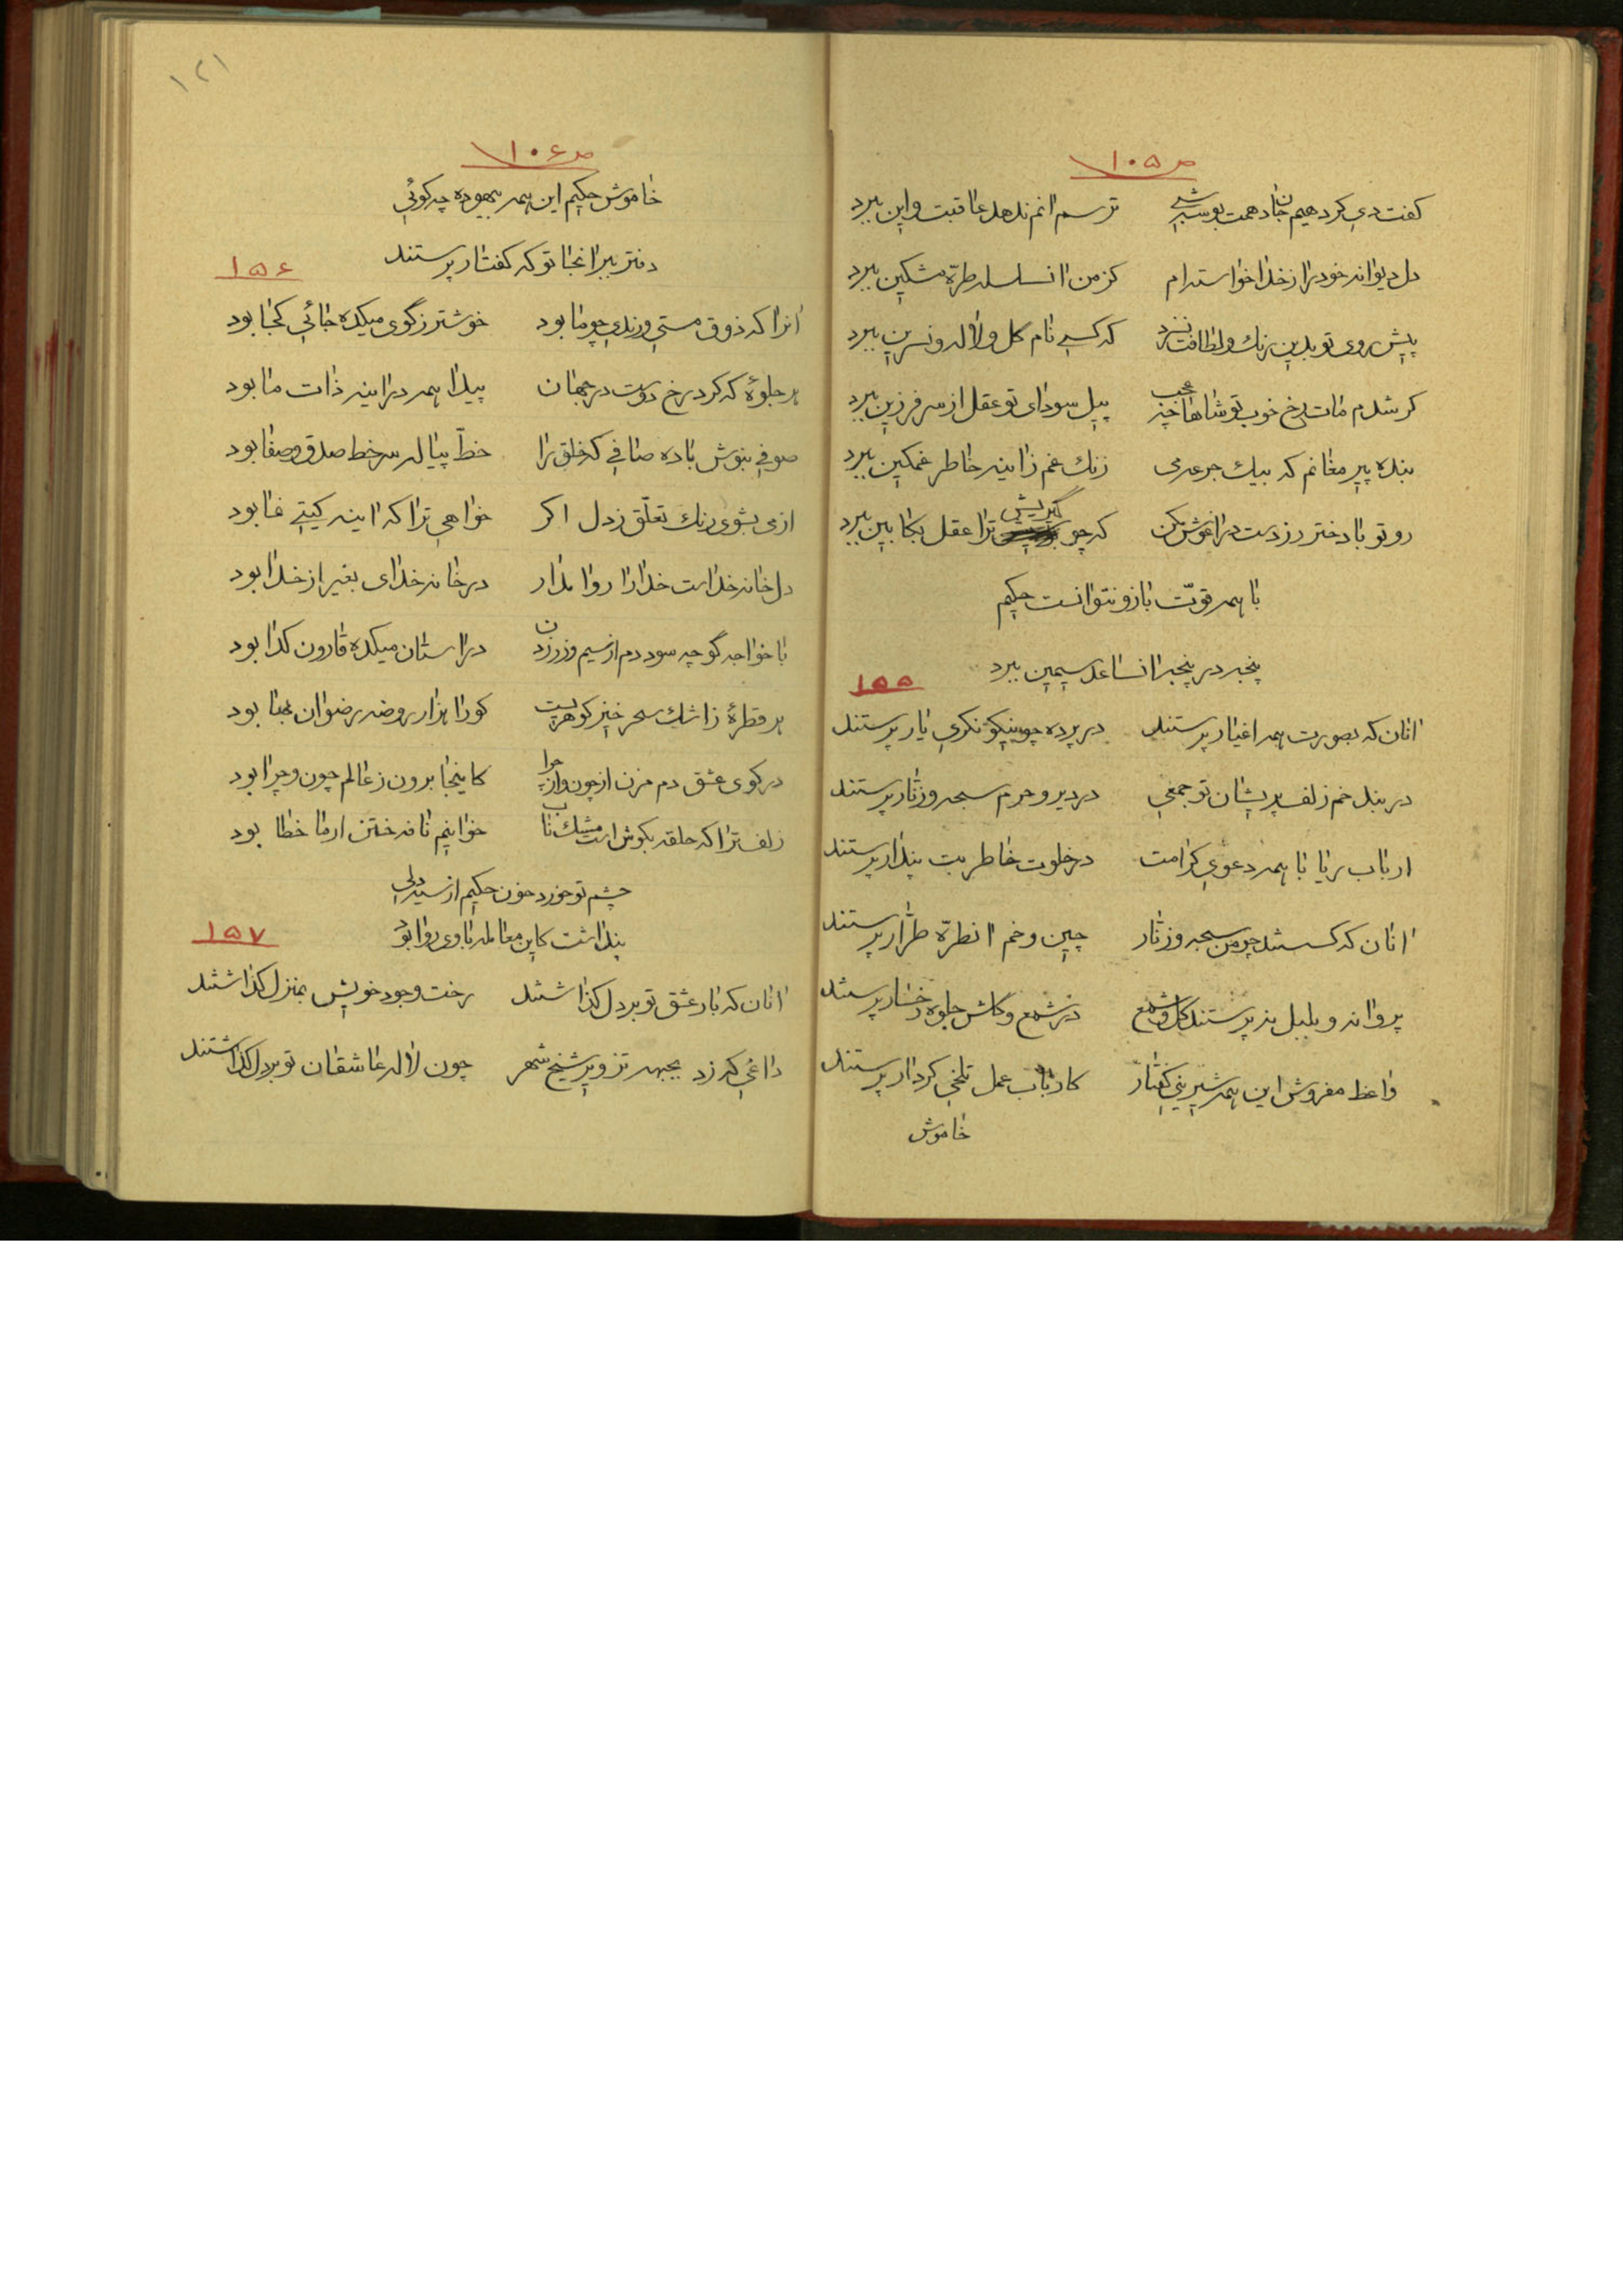 ص ۱۰۵
کفت دی کردهیم جان دهمت بوسه شبی ترسم انم ندهد عاقبت و این ببرد
دل دیوانه خود را از خدا خواسته‌ام کز من ان سلسله طرّه مشکین ببرد
پیش روی تو بدین رنك و لطافت نسزد که کسی نام کل و لاله و نسرین ببرد
کر شدم مات رخ خوب تو شاها چه عجب پیل سودای تو عقل از سر فرزین ببرد
بنده پیر مغانم که بیك جرعه می زنك غم ز اینه خاطر غمکین ببرد
رو تو با دختر رز دست در اغوش مکن که چو ترا عقل بکابین ببرد
با همه قوّت بازو نتوانست حکیم
پنجه در پنجه ان ساعد سیمین ببرد
۱۵۵
انان که بصورت همه اغیار پرستند در پرده چو نیکو نکری یار پرستند
در بند خم زلف پریشان تو جمعی در دیر و حرم سبحه و زنار پرستند
ارباب ریا با همه دعوی کرامت در خلوت خاطر بت پندار پرستند
انان که کسستند چو من سبحه و زنار چین و خم ان طرّه طرّار پرستند
پروانه و بلبل نپرستند کل و شمع در شمع و کلش جلوه رخسار پرستند
واعظ مفروش این همه شیرینی کفتار کارباب عمل تلخی کردار پرستند
خاموش
۱۲۱
ص ۱۰۶
خاموش حکیم این همه بیهوده چه کوئی
دفتر ببر انجا تو که کفتار پرستند
۱۵۶
انرا که ذوق مستی و رندی چو ما بود خوشتر ز گوی میکده جائی کجا بود
هر جلوۀ که کرد رخ دوست در جهان پیدا همه در اینه ذات ما بود
صوفی بنوش باده صافی که خلق را خطّ پیاله سر خط صدق و صفا بود
از می بشوی رنك تعلّق ز دل اکر خواهی ترا که اینه کیتی نما بود
دل خانه خداست خدا را روا مدار در خانه خدای بغیر از خدا بود
با خواجه گو چه سود دم از سیم و زر زدن در استان میکده قارون کدا بود
هر قطرۀ ز اشك سحر خیز کوهریست کو را هزار روضه رضوان بها بود
در کوی عشق دم مزن از چون و از چرا کاینجا برون ز عالم چون و چرا بود
زلف ترا که حلقه بکوش است مشك ناب خوانیم نافه ختن از ما خطا بود
چشم تو خورد خون حکیم از سیه دلی
پنداشت کاین معامله با وی روا بود
۱۵۷
انان که بار عشق تو بر دل کذاشتند رخت وجود خویش بمنزل کذاشتند
داغی که زد بجبهه تزویر شیخ شهر چون لاله عاشقان تو بر دل کذاشتند